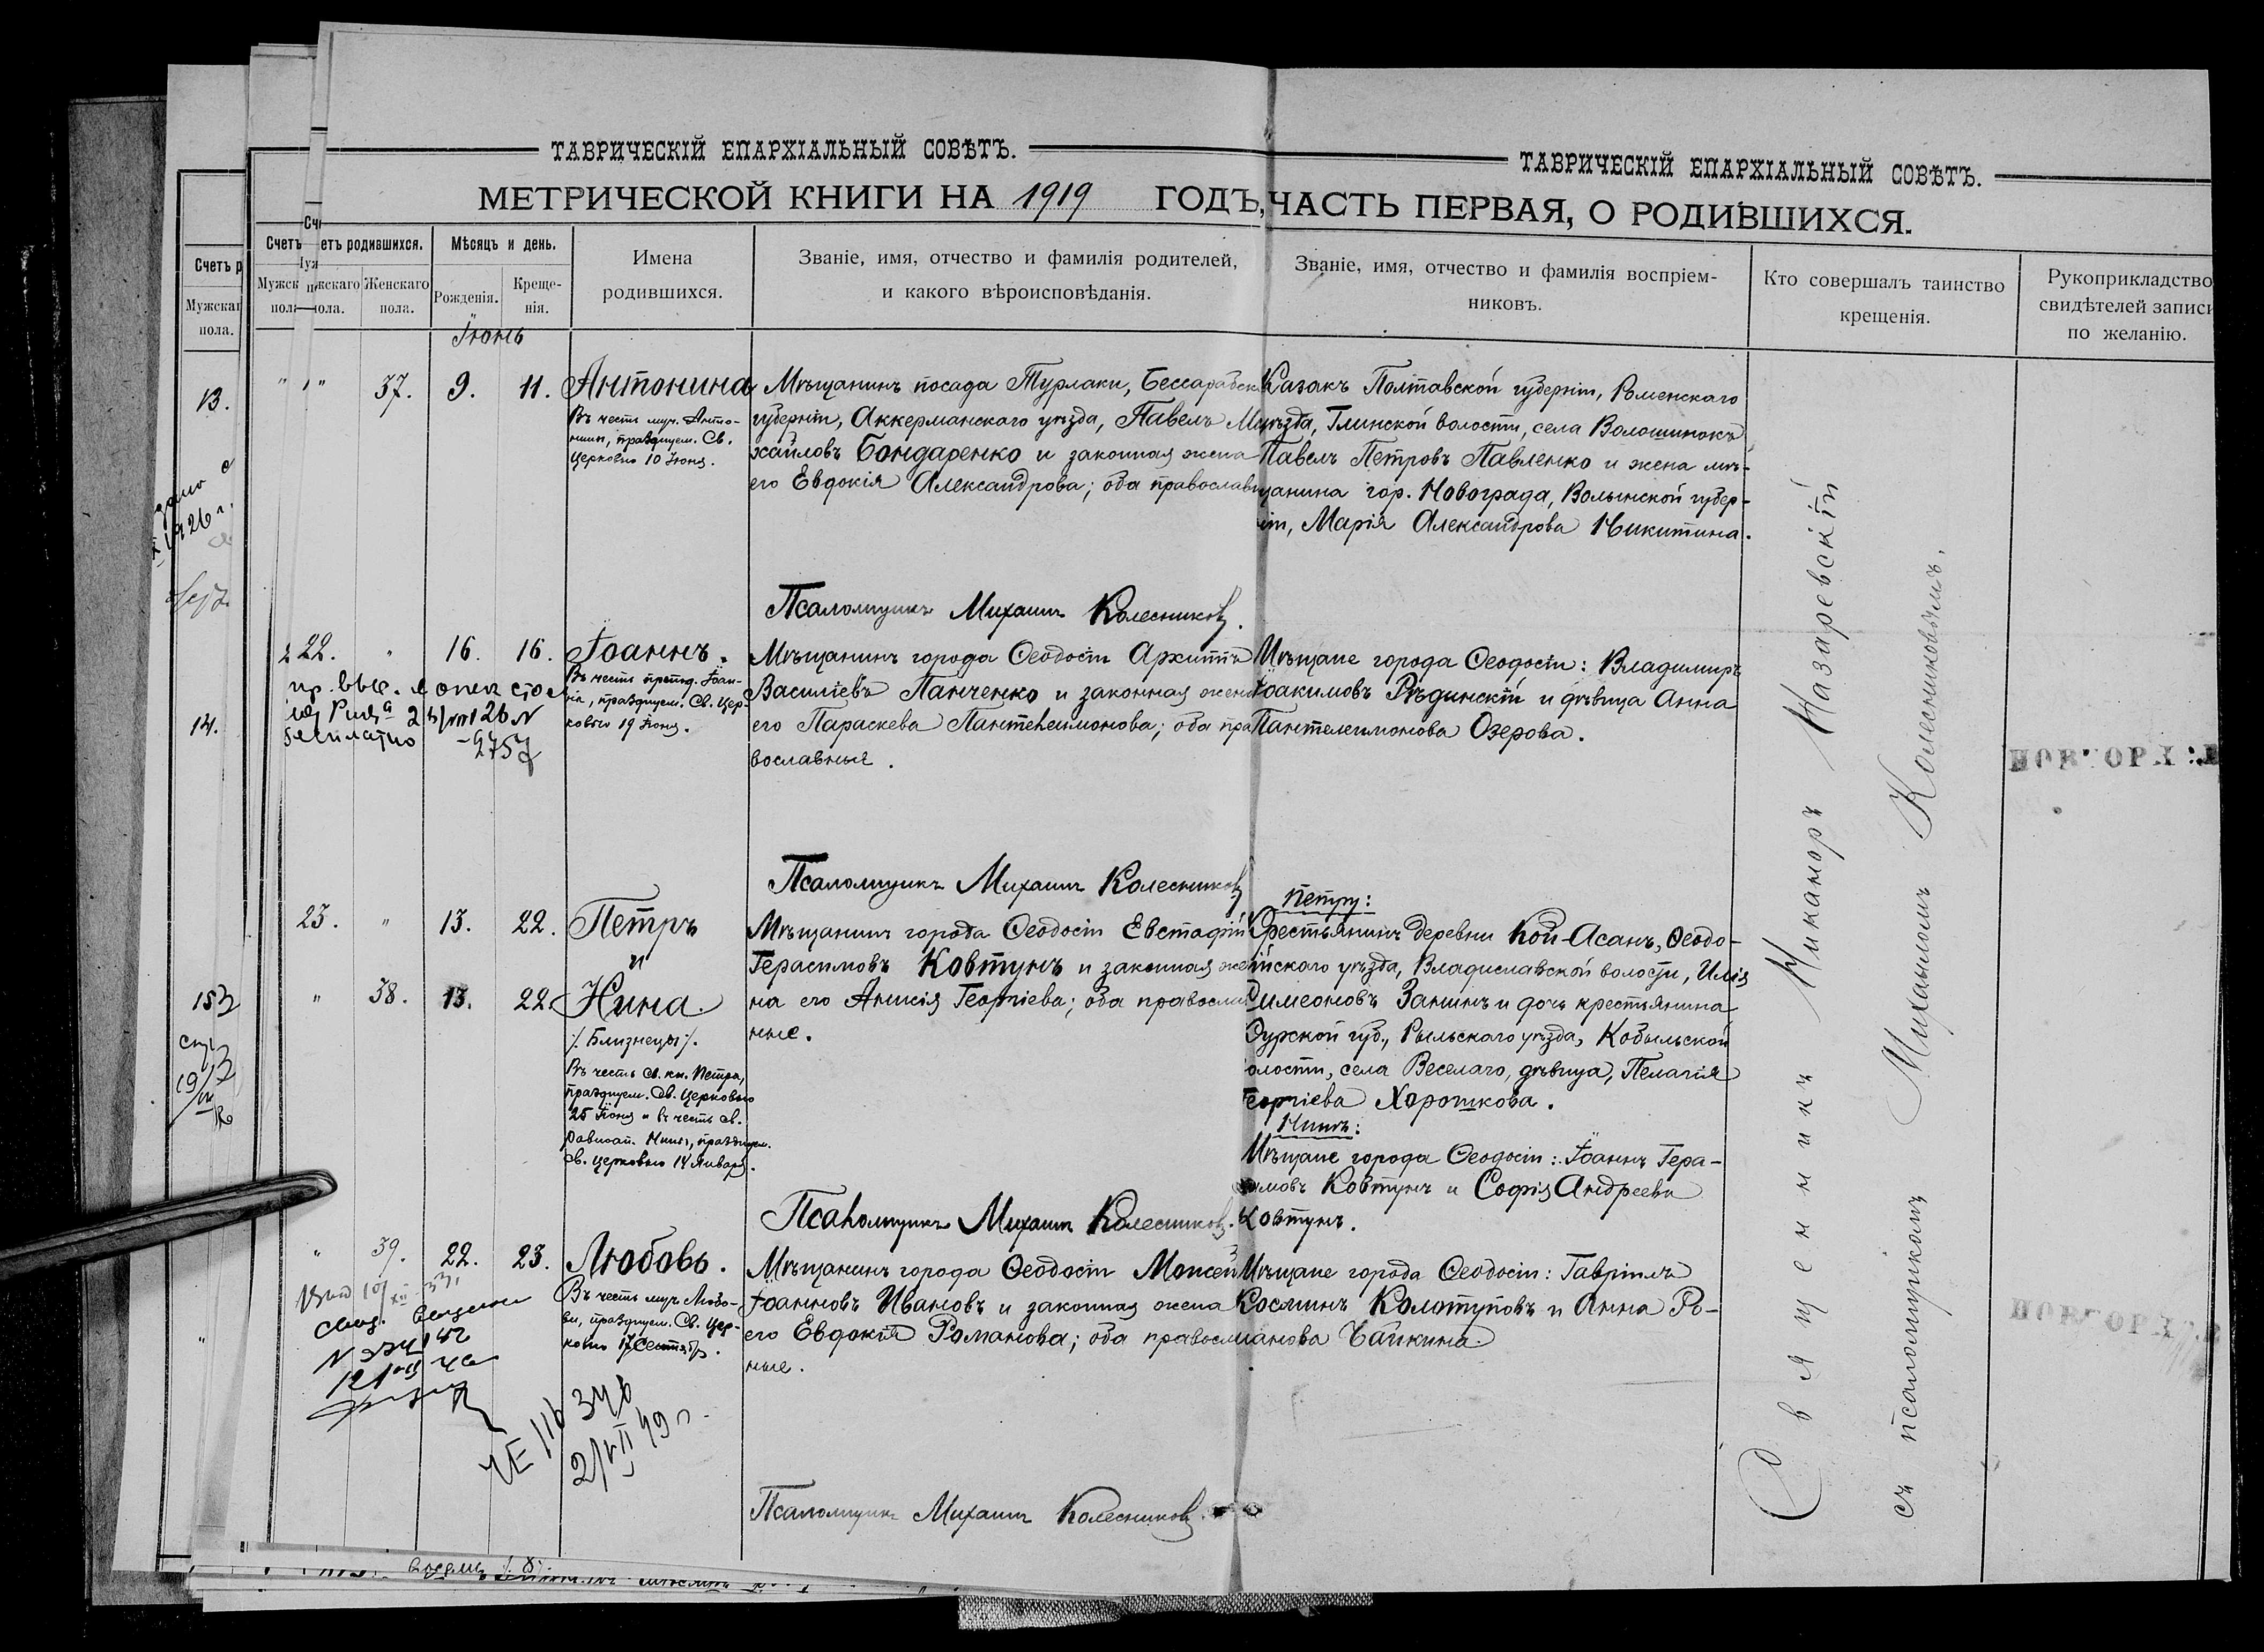 ТАВРИЧЕСКІЙ ЕПАРХІАЛЬНЫЙ СОВѢТЪ.
ТАВРИЧЕСКІЙ ЕПАРХІАЛЬНЫЙ СОВѢТЪ.
МЕТРИЧЕСКОЙ КНИГИ НА 1919 ГОДЪ, ЧАСТЬ ПЕРВАЯ, О РОДИВШИХСЯ.
Счетъ р
Мужскаг
пола.
Счетъ
етъ родившихся.
Мужск
жскаго пола.
Женскаго пола.
Мѣсяцъ и день.
Рожденія.
Креще-
нія.
Имена
родившихся.
Званіе, имя, отчество и фамилія родителей,
и какого вѣроисповѣданія.
Званіе, имя, отчество и фамилія воспріем-
никовъ.
Кто совершалъ таинство
крещенія.
Рукоприкладство
свидѣтелей записи
по желанію.
Іюнь
13.
1926 г.
14.
153
19
" " 37. 9. 11. Антонина
Въ честь муч. Анто-
нины, празднуем. Св.
Церковію 10 Іюня.
Мѣщанинъ посада Турлаки, Бессарабск
губерніи, Аккерманскаго уѣзда, Павелъ Ми
хайловъ Бондаренко и законная жена
его Евдокія Александрова; оба православн
Казакъ Полтавской губерніи, Роменскаго
уѣзда, Глинской волости, села Волошинокъ
Павелъ Петровъ Павленко и жена мѣ-
щанина гор. Новограда, Волынской губер-
іи, Марія Александрова Никитина.
Псаломщикъ Михаилъ Колесниковъ.
22. " 16. 16. Іоаннъ.
Въ честь препод. Іоан-
на, празднуем. Св. Цер-
ковію 19 Іюня.
2757
Мѣщанинъ города Ѳеодосіи Архиппъ
Василіевъ Панченко и законная жена
его Параскева Пантелеимонова; оба пра
вославные.
Мѣщане города Ѳеодосіи: Владимиръ
Іоакимовъ Рѣдинскій и дѣвица Анна
Пантелеимонова Озерова.
Псаломщикъ Михаилъ Колесниковъ
23. " 13. 22. Петръ
и
" 38. 13. 22. Нина
/. Близнецы /.
Въ честь св. кн. Петра,
празднуем. Св. Церковію
25 Іюня и въ честь св.
равноап. Нины, празднуем.
св. Церковію 14 Января.
Мѣщанинъ города Ѳеодосіи Евстафій
Герасимовъ Ковтунъ и законная же
на его Анисія Георгіева; оба правосла
ные.
Петру:
Крестьянинъ деревни Кой-Асанъ, Ѳеодо-
ійскаго уѣзда, Владиславской волости, Илія
Симеоновъ Занинъ и дочь крестьянина
Курской губ., Рыльскаго уѣзда, Кобыльской
олости, села Веселаго, дѣвица, Пелагія
Георгіева Хорошкова.
Нинѣ:
Мѣщане города Ѳеодосіи: Іоаннъ Гера-
имовъ Ковтунъ и Софія Андреева
Ковтунъ.
Псаломщикъ Михаилъ Колесниковъ.
" 39. 22. 23. Любовь.
Въ честь муч. Любо-
ви, празднуем. Св. Цер-
ковію 17 Сентябр.
Мѣщанинъ города Ѳеодосіи Моисей
Іоанновъ Ивановъ и законная жена
его Евдокія Романова; оба правосла
ные.
Мѣщане города Ѳеодосіи: Гавріилъ
Космин Колотуповъ и Анна Ро-
манова Чайкина.
116 346
2/VII 49 г.
Псаломщикъ Михаилъ Колесниковъ.
Священникъ Никаноръ Назаревскій
съ псаломщикомъ Михаиломъ Колесниковымъ.